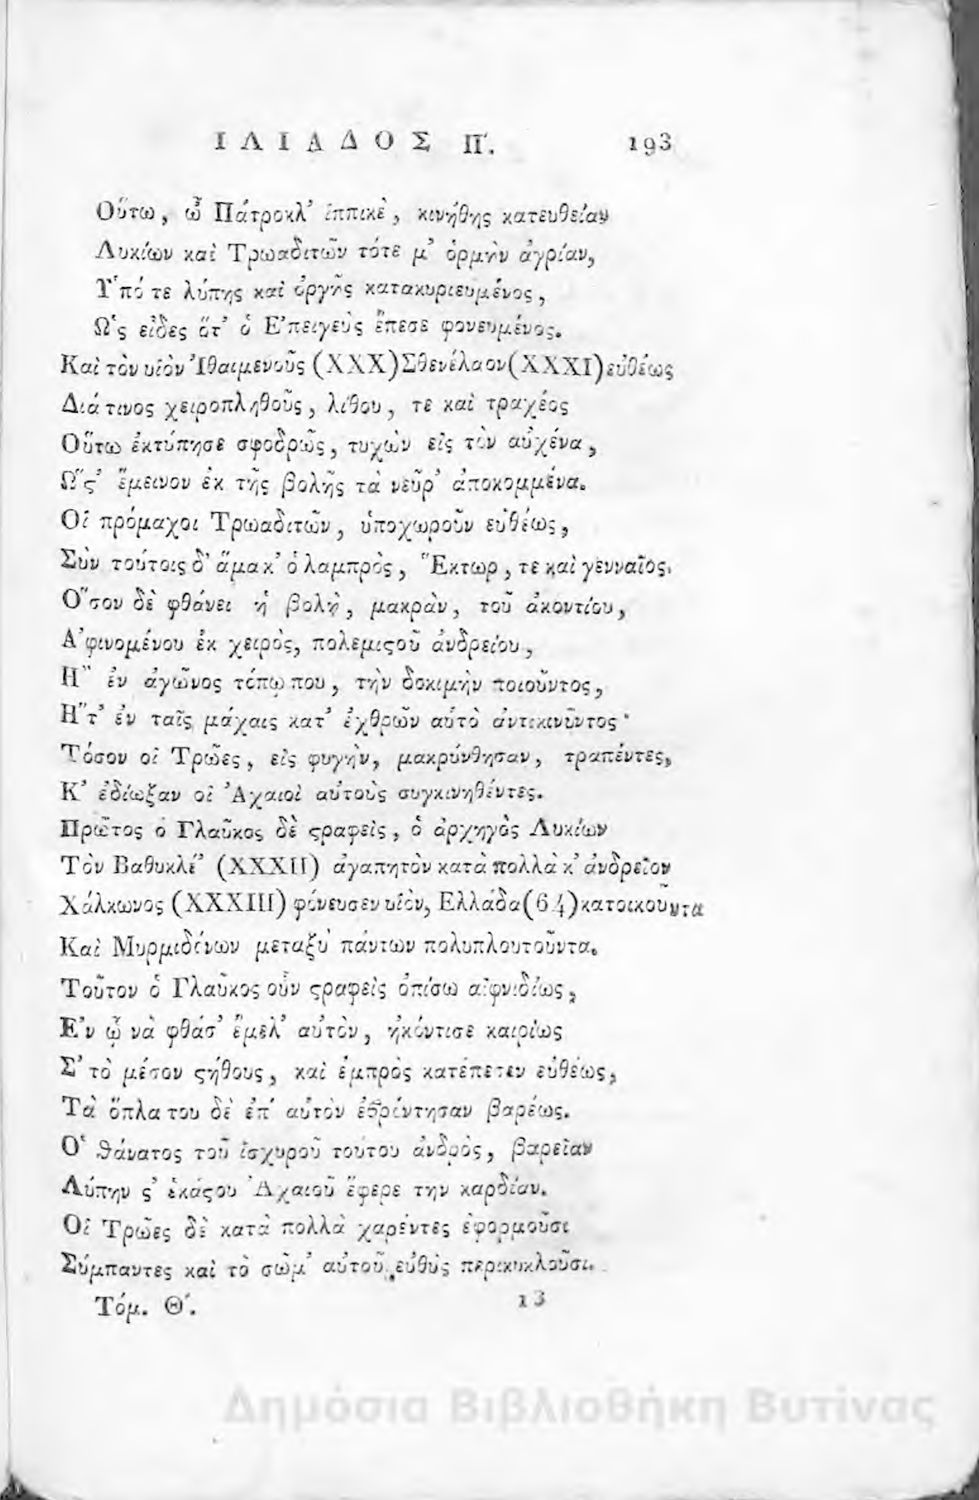 ΙΛΙΑΔΟΣ Π'. 193
Οὕτω, ὦ Πάτροκλ' ἱππικὲ, κινήθης κατευθεῖαν
Λυκίων καὶ Τρωαδιτῶν τότε μ' ὁρμὴν ἀγρίαν,
Υ῾πό τε λύπης καὶ ὀργῆς κατακυριευμένος,
Ω῾ς εἶδες ὅτ' ὁ Ε᾿πειγεὺς ἔπεσε φονευμένος.
Καὶ τὸν υἱὸν Ἰθαιμενοῦς (XXX) Σθενέλαον (XXXI) εὐθέως
Διά τινος χειροπληθοῦς, λίθου, τε καὶ τραχέος
Οὕτω ἐκτύπησε σφοδρῶς, τυχὼν εἰς τὸν αὐχένα,
Ω῞ς' ἔμεινον ἐκ τῆς βολῆς τὰ νεῦρ' ἀποκομμένα.
Οἱ πρόμαχοι Τρωαδιτῶν, ὑποχωροῦν εὐθέως,
Σὺν τούτοις δ' ἅμα κ' ὁ λαμπρὸς, Ἕκτωρ, τε καὶ γενναῖος.
Ο῞σον δὲ φθάνει ἡ βολὴ, μακρὰν, τοῦ ἀκοντίου,
Α᾿φινομένου ἐκ χειρὸς, πολεμιςοῦ ἀνδρείου,
Η῍ ἐν ἀγῶνος τόπῳ που, τὴν δοκιμὴν ποιοῦντος,
Η῎τ' ἐν ταῖς μάχαις κατ' ἐχθρῶν αὐτὸ ἀντικινοῦντος·
Τόσον οἱ Τρῶες, εἰς φυγὴν, μακρύνθησαν, τραπέντες,
Κ' ἐδίωξαν οἱ Ἀχαιοὶ αὐτοὺς συγκινηθέντες.
Πρῶτος ὁ Γλαῦκος δὲ ςραφεὶς, ὁ ἀρχηγὸς Λυκίων
Τὸν Βαθυκλέ' (XXXII) ἀγαπητὸν κατὰ πολλὰ κ' ἀνδρεῖον
Χάλκωνος (XXXIII) φόνευσεν υἱὸν, Ελλάδα (64) κατοικοῦντα
Καὶ Μυρμιδόνων μεταξὺ πάντων πολυπλουτοῦντα.
Τοῦτον ὁ Γλαῦκος οὖν ςραφεὶς ὀπίσω αἰφνιδίως,
Ε᾿ν ᾧ νὰ φθάσ' ἔμελ' αὐτὸν, ἠκόντισε καιρίως
Σ' τὸ μέσον ςήθους, καὶ ἐμπρὸς κατέπεσεν εὐθέως,
Τὰ ὅπλα του δὲ ἐπ' αὐτὸν ἐβρόντησαν βαρέως.
Ο῾ θάνατος τοῦ ἰσχυροῦ τούτου ἀνδρὸς, βαρεῖαν
Λύπην ς' ἑκάςου Ἀχαιοῦ ἔφερε τὴν καρδίαν.
Οἱ Τρῶες δὲ κατὰ πολλὰ χαρέντες ἐφορμοῦσι
Σύμπαντες καὶ τὸ σῶμ' αὐτοῦ, εὐθὺς περικυκλοῦσι.
Τόμ. Θ'. 13
Δημόσια Βιβλιοθήκη Βυτίνας